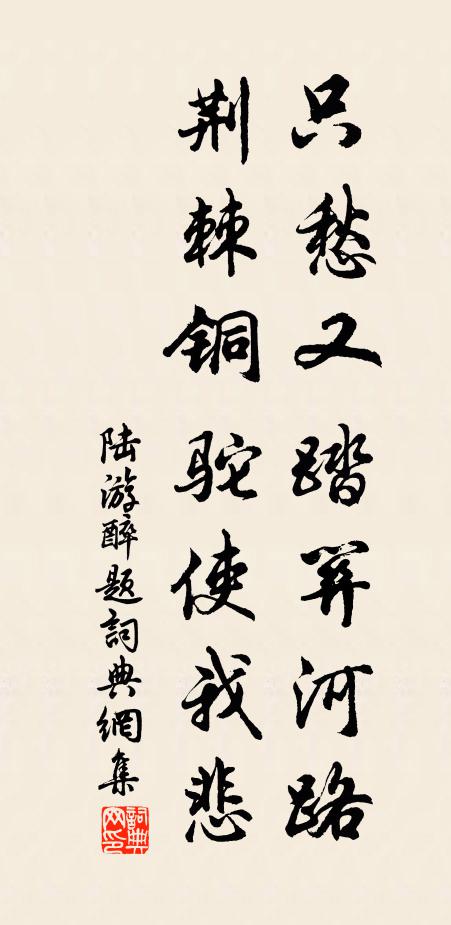 只愁又踏关河路
荆棘铜驼使我悲
陆游醉题詞典網集
詞典网印